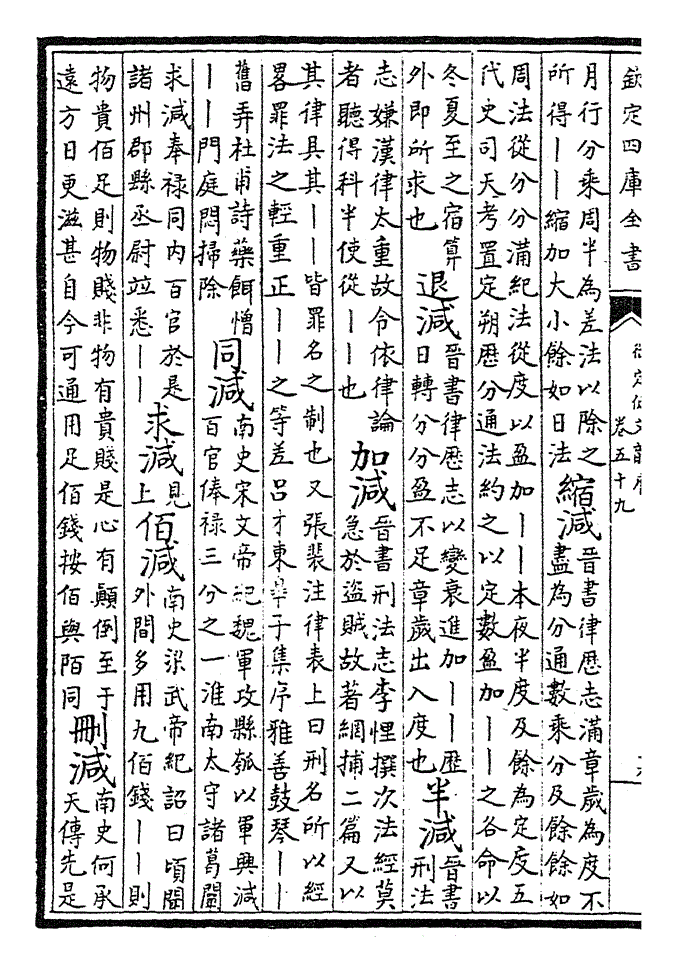 欽定四庫全書
御定佩文韻府
卷五十九
月行分乘周半為差法以除之
所得丨丨縮加大小餘如日法
縮減
晉書律歷志滿章歲為度不
盡為分通數乘分及餘餘如
周法從分分滿紀法從度以盈加丨丨本夜半度及餘為定度五
代史司天考置定朔歷分通法約之以定數盈加丨丨之各命以
冬夏至之宿算
外即所求也
退減
晉書律歷志以變衰進加丨丨歷
日轉分分盈不足章歲出入度也
半減
晉書
刑法
志嫌漢律太重故令依律論
者聽得科半使從丨丨也
加減
晉書刑法志李悝撰次法經莫
急於盜賊故著網捕二篇又以
其律具其丨丨皆罪名之制也又張裴注律表上曰刑名所以經
畧罪法之輕重正丨丨之等差呂才東臯子集序雅善鼓琴丨丨
舊弄杜甫詩藥餌憎
丨丨門庭悶掃除
同減
南史宋文帝紀魏軍攻縣瓠以軍興減
百官俸禄三分之一淮南太守諸葛闡
求減奉禄同内百官於是
諸州郡縣丞尉竝悉丨丨
求減
見
上
佰減
南史梁武帝紀詔曰頃聞
外間多用九佰錢丨丨則
物貴佰足則物賤非物有貴賤是心有顛倒至于
遠方日更滋甚自今可通用足佰錢按佰與陌同
刪減
南史何承
天傳先是